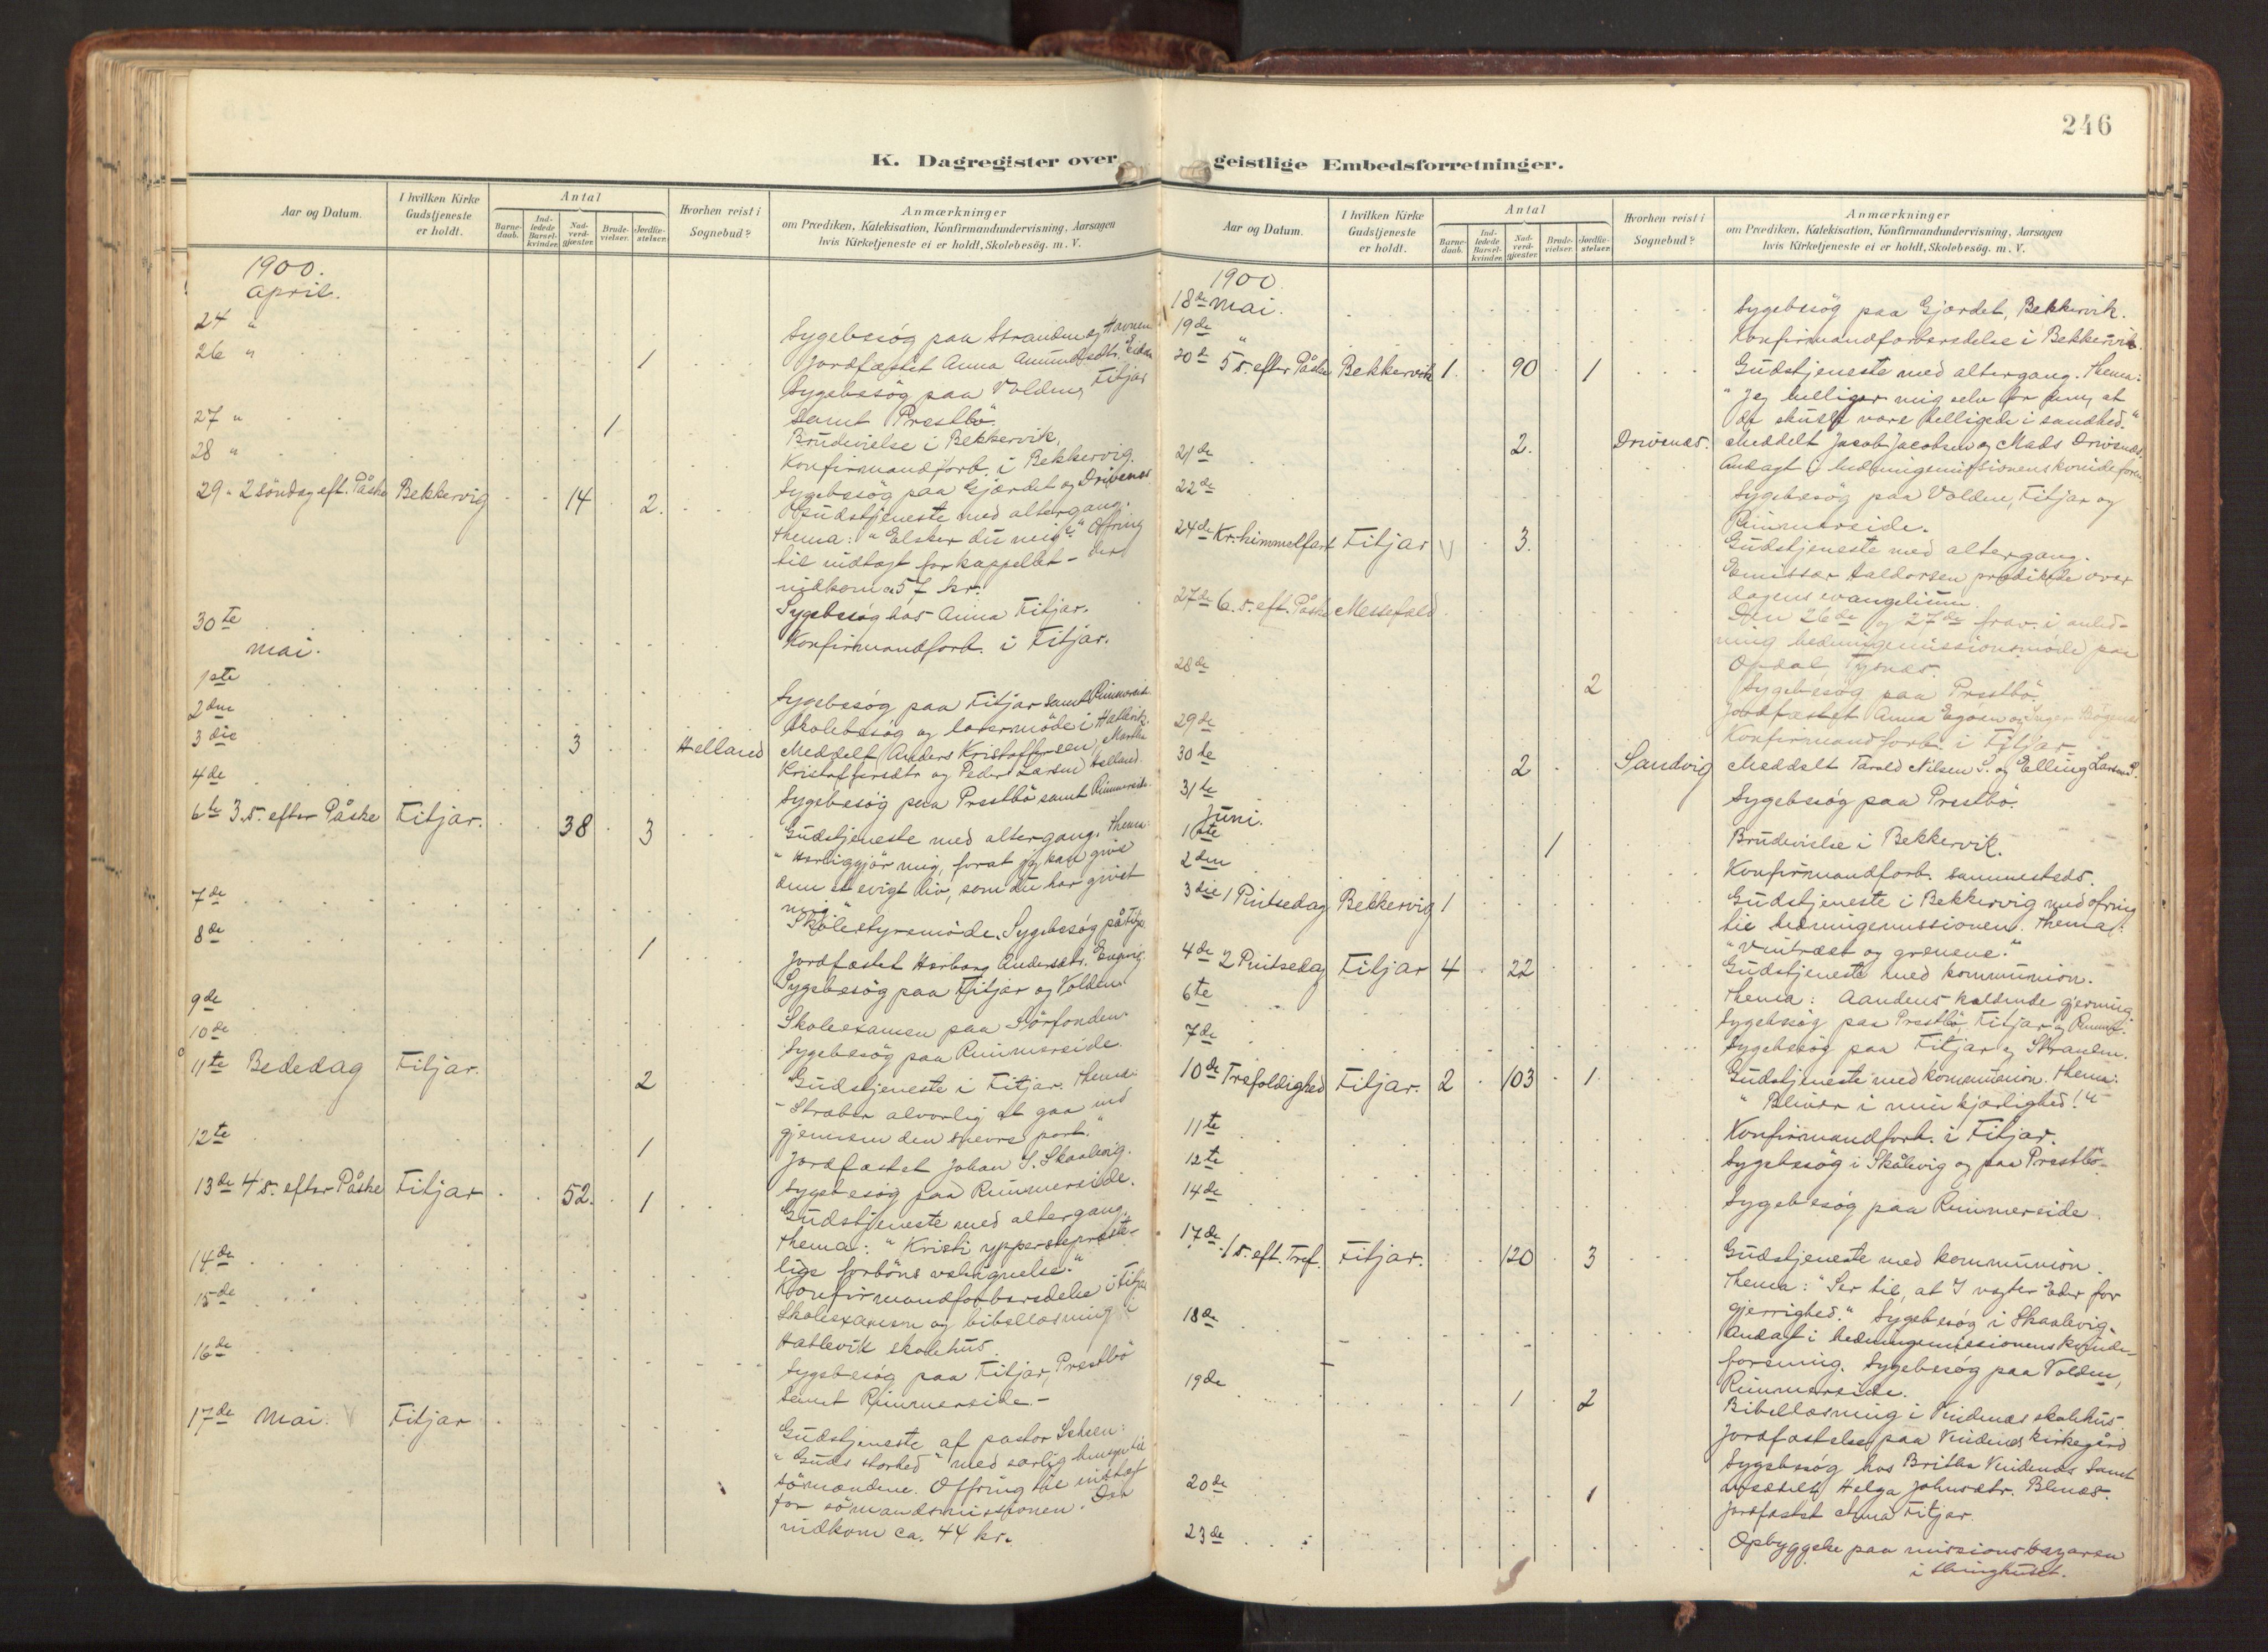 246
K. Dagregister over geistlige Embedsforretninger.
Aar og Datum.
I hvilken Kirke Gudstjeneste er holdt.
Antal
Barne-daab.
Ind-ledede Barsel-kvinder.
Nad-verd-gjæster.
Brude-vielser.
Jordfæ-stelser.
Hvorhen reist i Sognebud?
Anmærkninger
om Prædiken, Katekisation, Konfirmandundervisning, Aarsagen
hvis Kirketjeneste ei er holdt, Skolebesög. m. V.
1900.
April.
24 " Sygebesög paa Stranden og Havnen
26 " 1 Jordfæstet Anna Amundsdtr.
Sygebesög paa Volden, Fitjar
samt Prestbö.
27 " 1 Brudevielse i Bekkervik.
28 " Konfirmandforb. i Bekkervig.
Sygebesög paa Gjærdet og Drivenes
29 " 2 söndag eft. Påske Bekkervig 14 2. Gudstjeneste med altergang.
Thema: "Elsker du mig?" Ofring
til indtægt for kappellet - der
indkom 57 kr.
Sygebesög hos Anna Fitjar.
30te Konfirmandforb. i Fitjar.
Mai.
1ste Sygebesög paa Fitjar samt Rimmereide.
2den Skolebesög og lærermöde i Hatlevik.
3die 3 Helland Meddelt Anders Kristoffersen, Martha
Kristoffersdtr og Peder Larsen Helland.
4de Sygebesög paa Prestbö samt Rimmereide.
6te 3. S. efter Påske Fitjar. 38 3 Gudstjeneste med altergang. Thema:
"Herliggjör mig, forat jeg kan give
dem et evigt liv, som du har givet
mig."
7de Skolestyremöde. Sygebesög på Fitjar.
8de 1 Jordfæstet Herborg Andersdtr. Engevig.
Sygebesög paa Fitjar og Volden.
9de Skoleexamen paa Sörfonden.
10de Sygebesög paa Rimmereide.
11te Bededag Fitjar. 2 Gudstjeneste i Fitjar. Thema:
"Stræber alvorlig at gaa ind
gjennem den snevre port."
12te 1 Jordfæstet Johan S. Skaalevig.
Sygebesög paa Rimmereide.
13de 4 S. efter Påske Fitjar 52. 1 Gudstjeneste med altergang.
Thema: "Kristi yppersteprestelige forböns velsignelse."
14de Konfirmandforberedelse i Fitjar
15de Skoleexamen og bibellæsning i
Hatlevik skolehus.
16de Sygebesög paa Fitjar, Prestbö
samt Rimmereide. -
17de Mai. Fitjar Gudstjeneste af pastor Setsen:
"Guds storhed" med særlig hensyn til
sömændene. Offring til indtægt
for sömandsmissionen. Der
indkom ca. 44 kr.
Aar og Datum.
I hvilken Kirke Gudstjeneste er holdt.
Antal
Barne-daab.
Ind-ledede Barsel-kvinder.
Nad-verd-gjæster.
Brude-vielser.
Jordfæ-stelser.
Hvorhen reist i Sognebud?
Anmærkninger
om Prædiken, Katekisation, Konfirmandundervisning, Aarsagen
hvis Kirketjeneste ei er holdt, Skolebesög. m. V.
1900.
18de Mai. Sygebesög paa Gjærdet, Bekkervik.
19de " Konfirmandforberedelse i Bekkervik.
20de 5 S. efter Påske Bekkervik 1 90 1 Gudstjeneste med altergang. Thema:
"Jeg helliger mig selv for dem, at
de skulle være helligede i sandhed."
2. Drivenæs. Meddelt Jacob Jacobsen og Mads Drivenæs
21de Andagt i hedningemissionens kvindeforen.
22de Sygebesög paa Volden, Fitjar og
Rimmereide.
24de Kr. himmelfart Fitjar 3. Gudstjeneste med altergang.
Emissær Haldorsen prædikede over
dagens evangelium.
27de 6. S. eft. Påske Messefald Den 26de og 27de frav. i anledning hedningemissionsmöde paa
Opdal, Tysnæs.
28de 2 Sygebesög paa Prestbö.
Jordfæstet Anna og Inger
29de Konfirmandforb. i Fitjar.
30te 2 Sandvig Meddelt Tarald Nilsen S. og Elling Larsen S.
31te Sygebesög paa Prestbö.
Juni.
1ste 1 Brudevielse i Bekkervik.
2den Konfirmandforb. sammesteds.
3die 1 Pintsedag Bekkervig 1 Gudstjeneste i Bekkervig med ofring
til hedningemissionen. Thema:
"Vintræet og grenene."
4de 2 Pintsedag Fitjar 4 22 Gudstjeneste med kommunion.
Thema: Aandens kaldende gjerning
6te Sygebesög paa Prestbö, Fitjar og
7de Sygebesög paa Fitjar og Stranden.
10de Trefoldighed Fitjar. 2 103 1 Gudstjeneste med kommunion. Thema:
"Bliver i min kjærlighed!"
11te Konfirmandforb. i Fitjar.
12te Sygebesög i Skålevig og paa Prestbö
14de Sygebesög paa Rimmereide.
17de 1 S. eft. Tref. Fitjar. 120 3 Gudstjeneste med kommunion.
Thema: "Ser til, at I vogter Eder for
gjerrighed." Sygebesög i Skaalevig.
18de Andagt i hedningemissionens kvindeforening. Sygebesög paa Volden,
Rimmereide.
19de 1 2 Bibellæsning i Vindenæs skolehus
Jordfæstelse paa Vindenæs kirkegård
Sygebesög hos Britha Vindenæs samt
meddelt Helga Johnsdtr. Blinæs.
20de 1 Jordfæstet Anna Fitjar.
23de Opbyggelse paa missionsbazaren
i thinghuset.